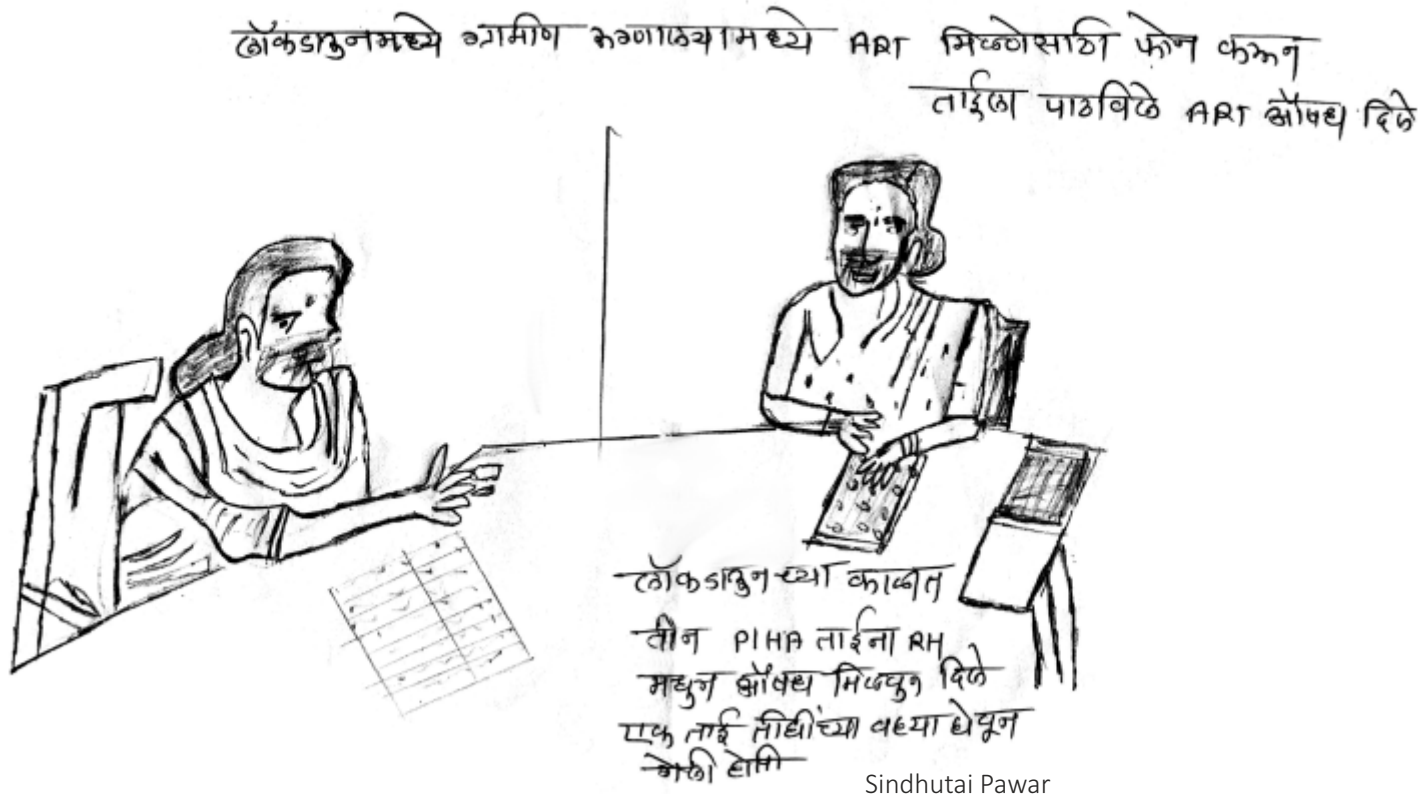 लॉकडाऊनमध्ये ग्रामीण रुग्णालयामध्ये ART मिळणेसाठी फोन करून
ताईला पाठविले ART औषध दिले
लॉकडाऊनच्या काळात
तीन PIHA ताईना RH
मधुन औषध मिळवुन दिले
एक ताई तीघींच्या वह्या घेवून
गेली होती
Sindhutai Pawar